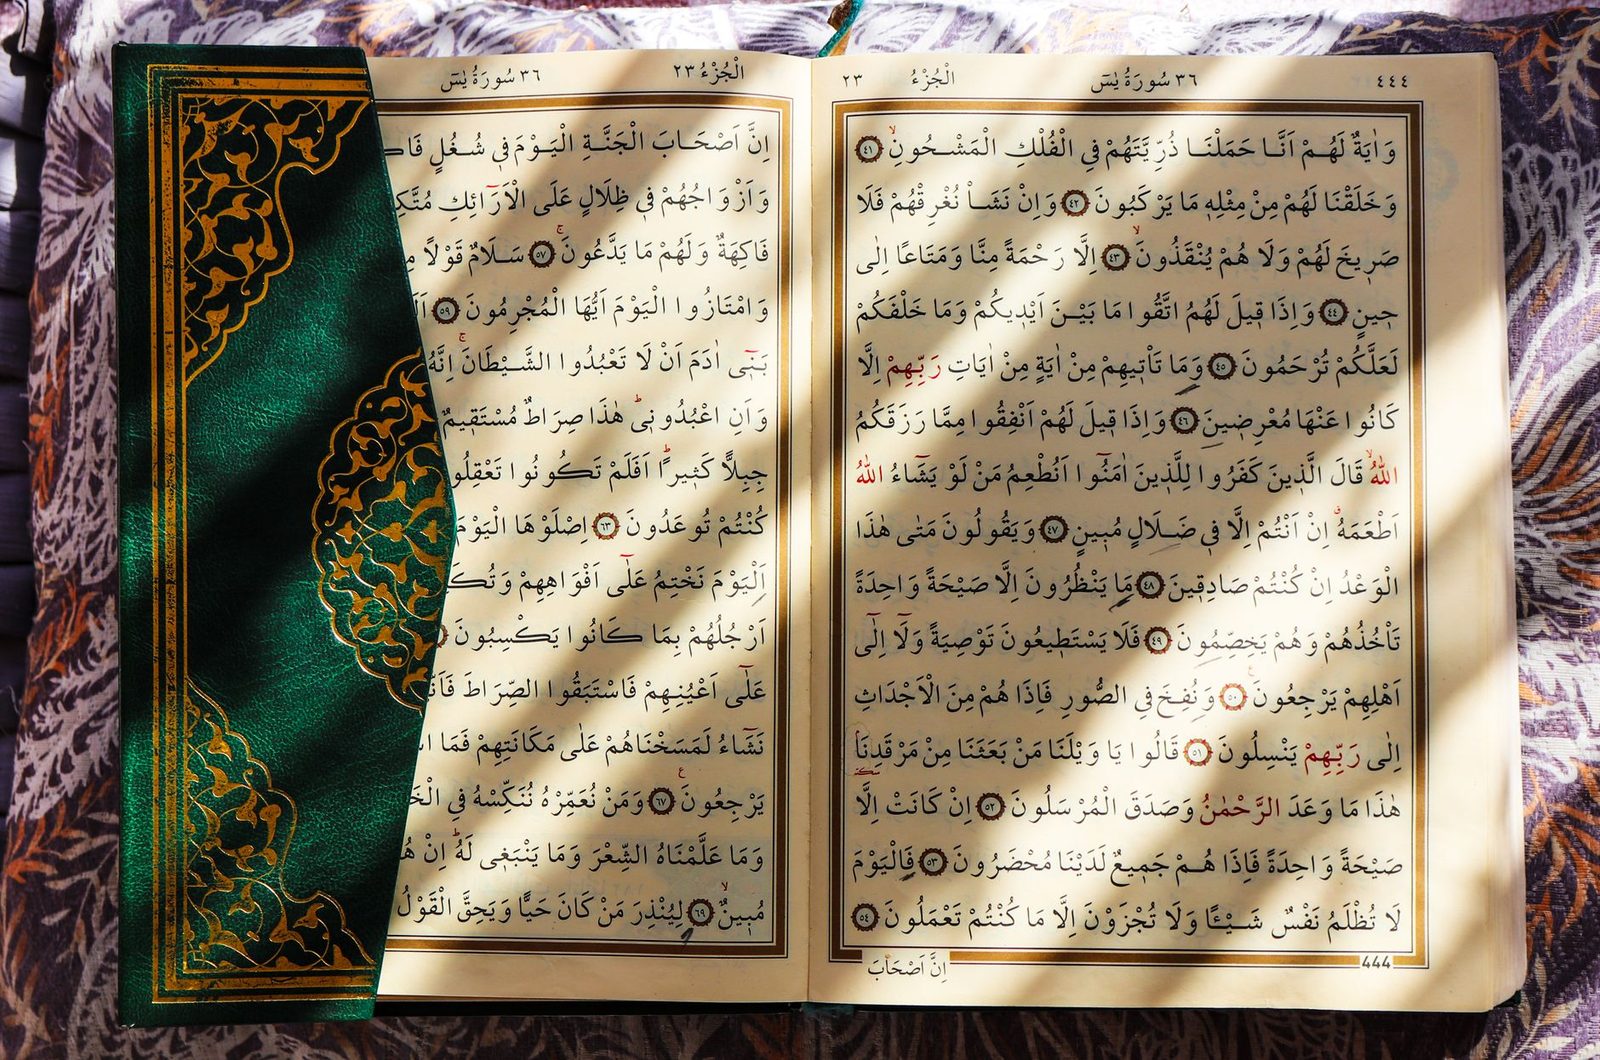 ٤٤٤ ٣٦ سُورَةُ يٰسٓ اَلْجُزْءُ ٢٣
وَاٰيَةٌ لَهُمْ اَنَّا حَمَلْنَا ذُرِّيَّتَهُمْ فِي الْفُلْكِ الْمَشْحُونِۙ ﴿٤١﴾
وَخَلَقْنَا لَهُمْ مِنْ مِثْلِه۪ مَا يَرْكَبُونَ ﴿٤٢﴾ وَاِنْ نَشَأْ نُغْرِقْهُمْ فَلَا
صَر۪يخَ لَهُمْ وَلَا هُمْ يُنْقَذُونَۙ ﴿٤٣﴾ اِلَّا رَحْمَةً مِنَّا وَمَتَاعًا اِلٰى
ح۪ينٍ ﴿٤٤﴾ وَاِذَا ق۪يلَ لَهُمُ اتَّقُوا مَا بَيْنَ اَيْد۪يكُمْ وَمَا خَلْفَكُمْ
لَعَلَّكُمْ تُرْحَمُونَ ﴿٤٥﴾ وَمَا تَأْت۪يهِمْ مِنْ اٰيَةٍ مِنْ اٰيَاتِ رَبِّهِمْ اِلَّا
كَانُوا عَنْهَا مُعْرِض۪ينَ ﴿٤٦﴾ وَاِذَا ق۪يلَ لَهُمْ اَنْفِقُوا مِمَّا رَزَقَكُمُ
اللّٰهُۙ قَالَ الَّذ۪ينَ كَفَرُوا لِلَّذ۪ينَ اٰمَنُٓوا اَنُطْعِمُ مَنْ لَوْ يَشَٓاءُ اللّٰهُ
اَطْعَمَهُۗ اِنْ اَنْتُمْ اِلَّا ف۪ي ضَلَالٍ مُب۪ينٍ ﴿٤٧﴾ وَيَقُولُونَ مَتٰى هٰذَا
الْوَعْدُ اِنْ كُنْتُمْ صَادِق۪ينَ ﴿٤٨﴾ مَا يَنْظُرُونَ اِلَّا صَيْحَةً وَاحِدَةً
تَأْخُذُهُمْ وَهُمْ يَخِصِّمُونَ ﴿٤٩﴾ فَلَا يَسْتَط۪يعُونَ تَوْصِيَةً وَلَٓا اِلٰٓى
اَهْلِهِمْ يَرْجِعُونَ ﴿٥٠﴾ وَنُفِخَ فِي الصُّورِ فَاِذَا هُمْ مِنَ الْاَجْدَاثِ
اِلٰى رَبِّهِمْ يَنْسِلُونَ ﴿٥١﴾ قَالُوا يَا وَيْلَنَا مَنْ بَعَثَنَا مِنْ مَرْقَدِنَا
هٰذَا مَا وَعَدَ الرَّحْمٰنُ وَصَدَقَ الْمُرْسَلُونَ ﴿٥٢﴾ اِنْ كَانَتْ اِلَّا
صَيْحَةً وَاحِدَةً فَاِذَا هُمْ جَم۪يعٌ لَدَيْنَا مُحْضَرُونَ ﴿٥٣﴾ فَالْيَوْمَ
لَا تُظْلَمُ نَفْسٌ شَيْـًٔا وَلَا تُجْزَوْنَ اِلَّا مَا كُنْتُمْ تَعْمَلُونَ ﴿٥٤﴾
444
اِنَّ اَصْحَابَ
اَلْجُزْءُ ٢٣ ٣٦ سُورَةُ يٰسٓ
اِنَّ اَصْحَابَ الْجَنَّةِ الْيَوْمَ ف۪ي شُغُلٍ
وَاَزْوَاجُهُمْ ف۪ي ظِلَالٍ عَلَى الْاَرَٓائِكِ
فَاكِهَةٌ وَلَهُمْ مَا يَدَّعُونَۚ ﴿٥٧﴾ سَلَامٌ قَوْلًا
وَامْتَازُوا الْيَوْمَ اَيُّهَا الْمُجْرِمُونَ ﴿٥٩﴾
بَن۪ٓي اٰدَمَ اَنْ لَا تَعْبُدُوا الشَّيْطَانَۚ اِنَّهُ
وَاَنِ اعْبُدُون۪يۜ هٰذَا صِرَاطٌ مُسْتَق۪يمٌ
جِبِلًّا كَث۪يرًاۜ اَفَلَمْ تَكُونُوا تَعْقِلُو
كُنْتُمْ تُوعَدُونَ ﴿٦٣﴾ اِصْلَوْهَا الْيَوْمَ
اَلْيَوْمَ نَخْتِمُ عَلٰٓى اَفْوَاهِهِمْ
اَرْجُلُهُمْ بِمَا كَانُوا يَكْسِبُونَ
عَلٰٓى اَعْيُنِهِمْ فَاسْتَبَقُوا الصِّرَاطَ
نَشَٓاءُ لَمَسَخْنَاهُمْ عَلٰى مَكَانَتِهِمْ فَمَا
يَرْجِعُونَ۟ ﴿٦٧﴾ وَمَنْ نُعَمِّرْهُ نُنَكِّسْهُ فِي
وَمَا عَلَّمْنَاهُ الشِّعْرَ وَمَا يَنْبَغ۪ي لَهُۜ اِنْ
مُب۪ينٌۙ ﴿٦٩﴾ لِيُنْذِرَ مَنْ كَانَ حَيًّا وَيَحِقَّ الْقَوْلُ